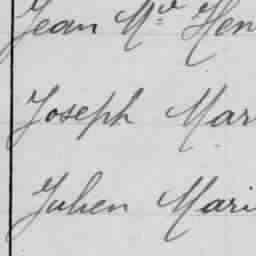 Jean Mie Hen
Joseph Mar
Julien Mari